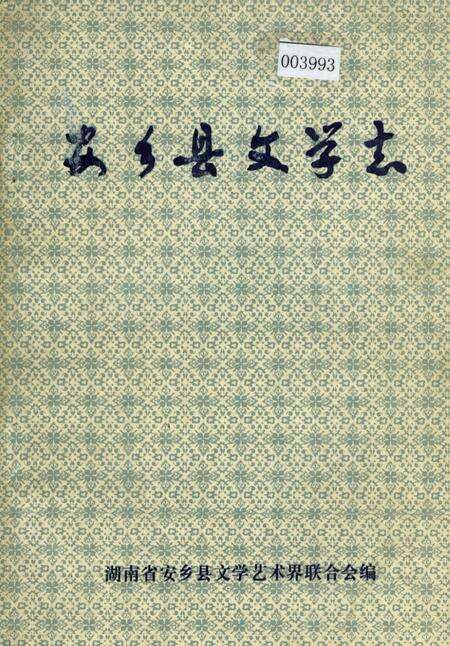 003993
安乡县文学志
湖南省安乡县文学艺术界联合会编